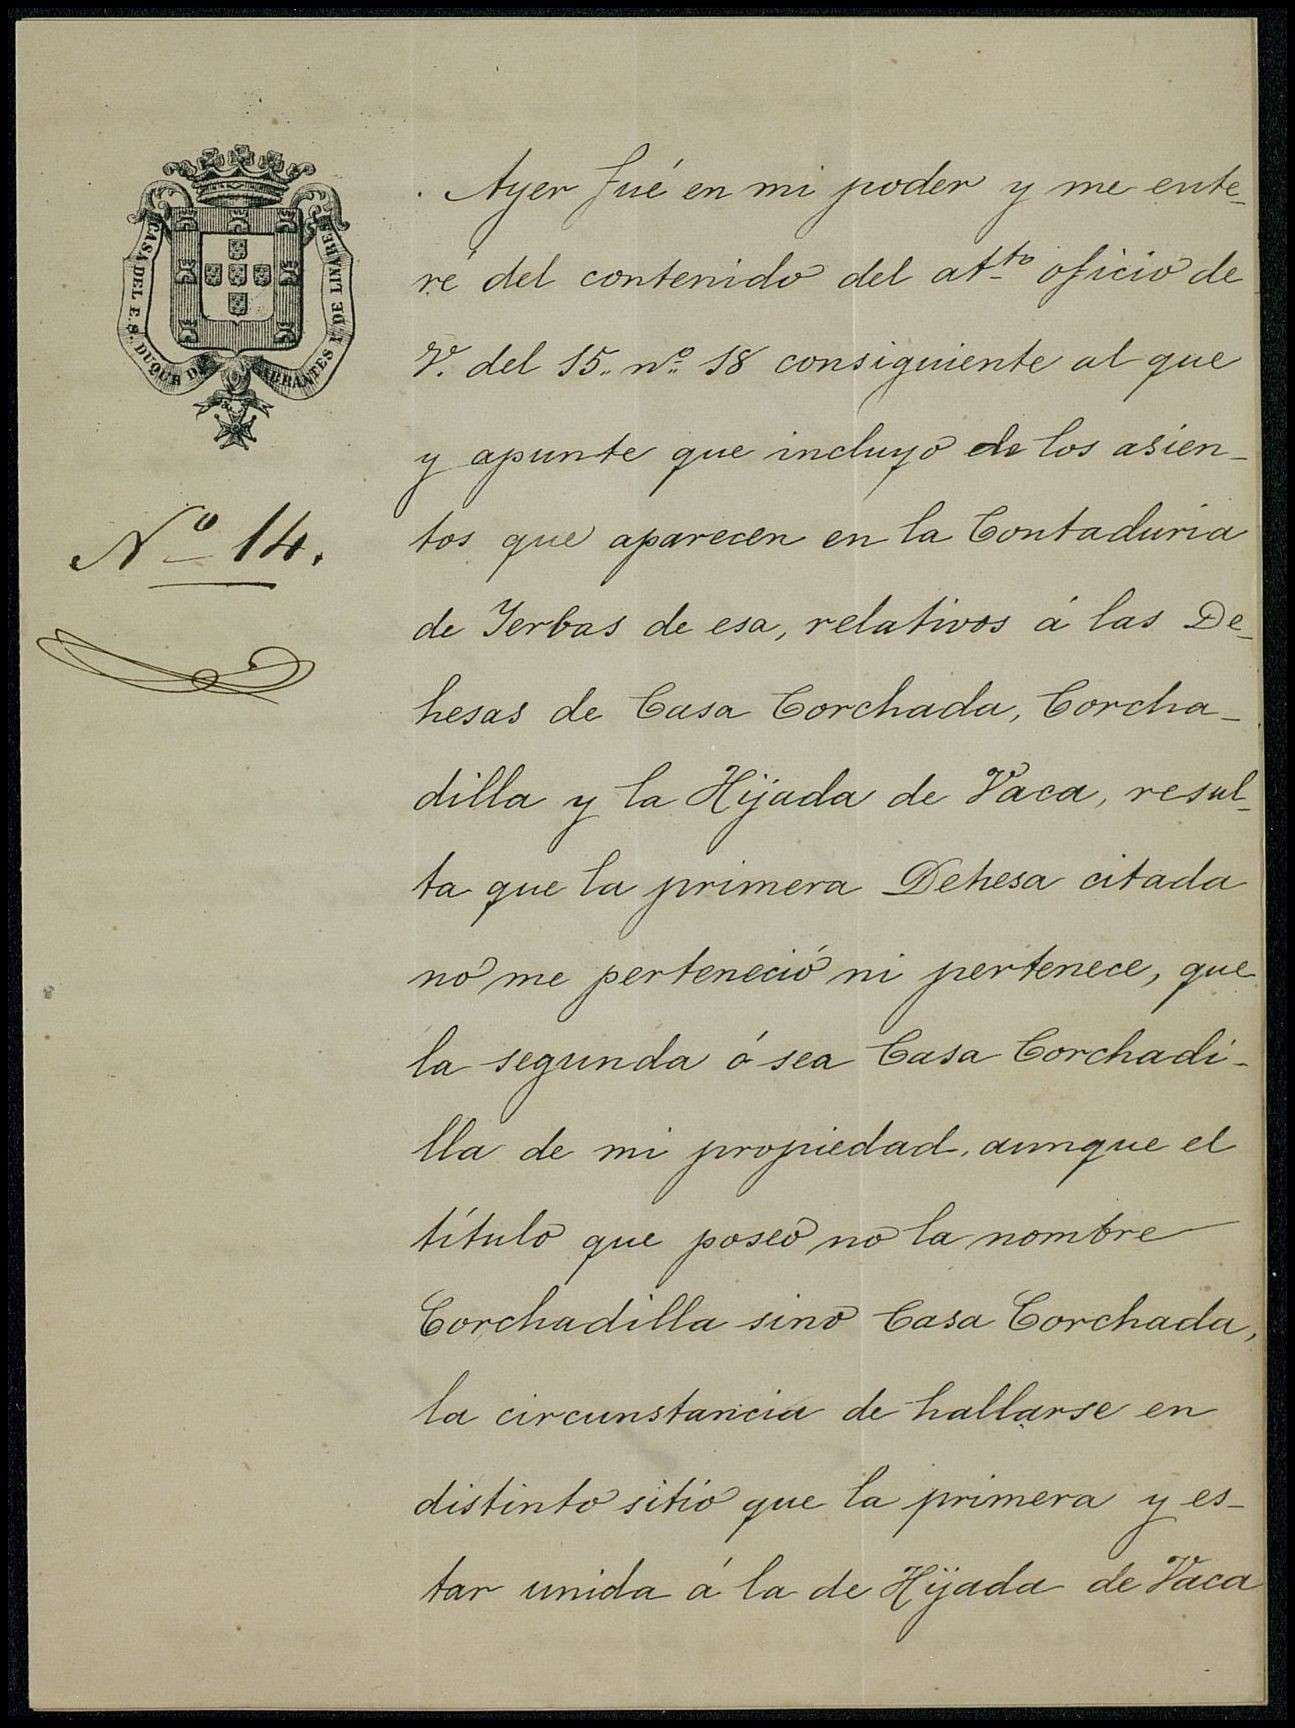 CASA DEL E. S. DUQUE DE ABRANTES Y DE LINARES
Nº 14.
Ayer fué en mi poder y me ente-
ré del contenido del attº oficio de
V. del 15.. nº 18 consiguiente al que
y apunte que incluyo de los asien-
tos que aparecen en la Contaduria
de Yerbas de esa, relativos á las De-
hesas de Casa Corchada, Corcha-
dilla y la Hijada de Vaca, resul-
ta que la primera Dehesa citada
nó me perteneció ni pertenece, que
la segunda ó sea Casa Corchadi-
lla de mi propiedad, aunque el
título que poseo no la nombre
Corchadilla sino Casa Corchada,
la circunstancia de hallarse en
distinto sitio que la primera y es-
tar unida á la de Hijada de Vaca